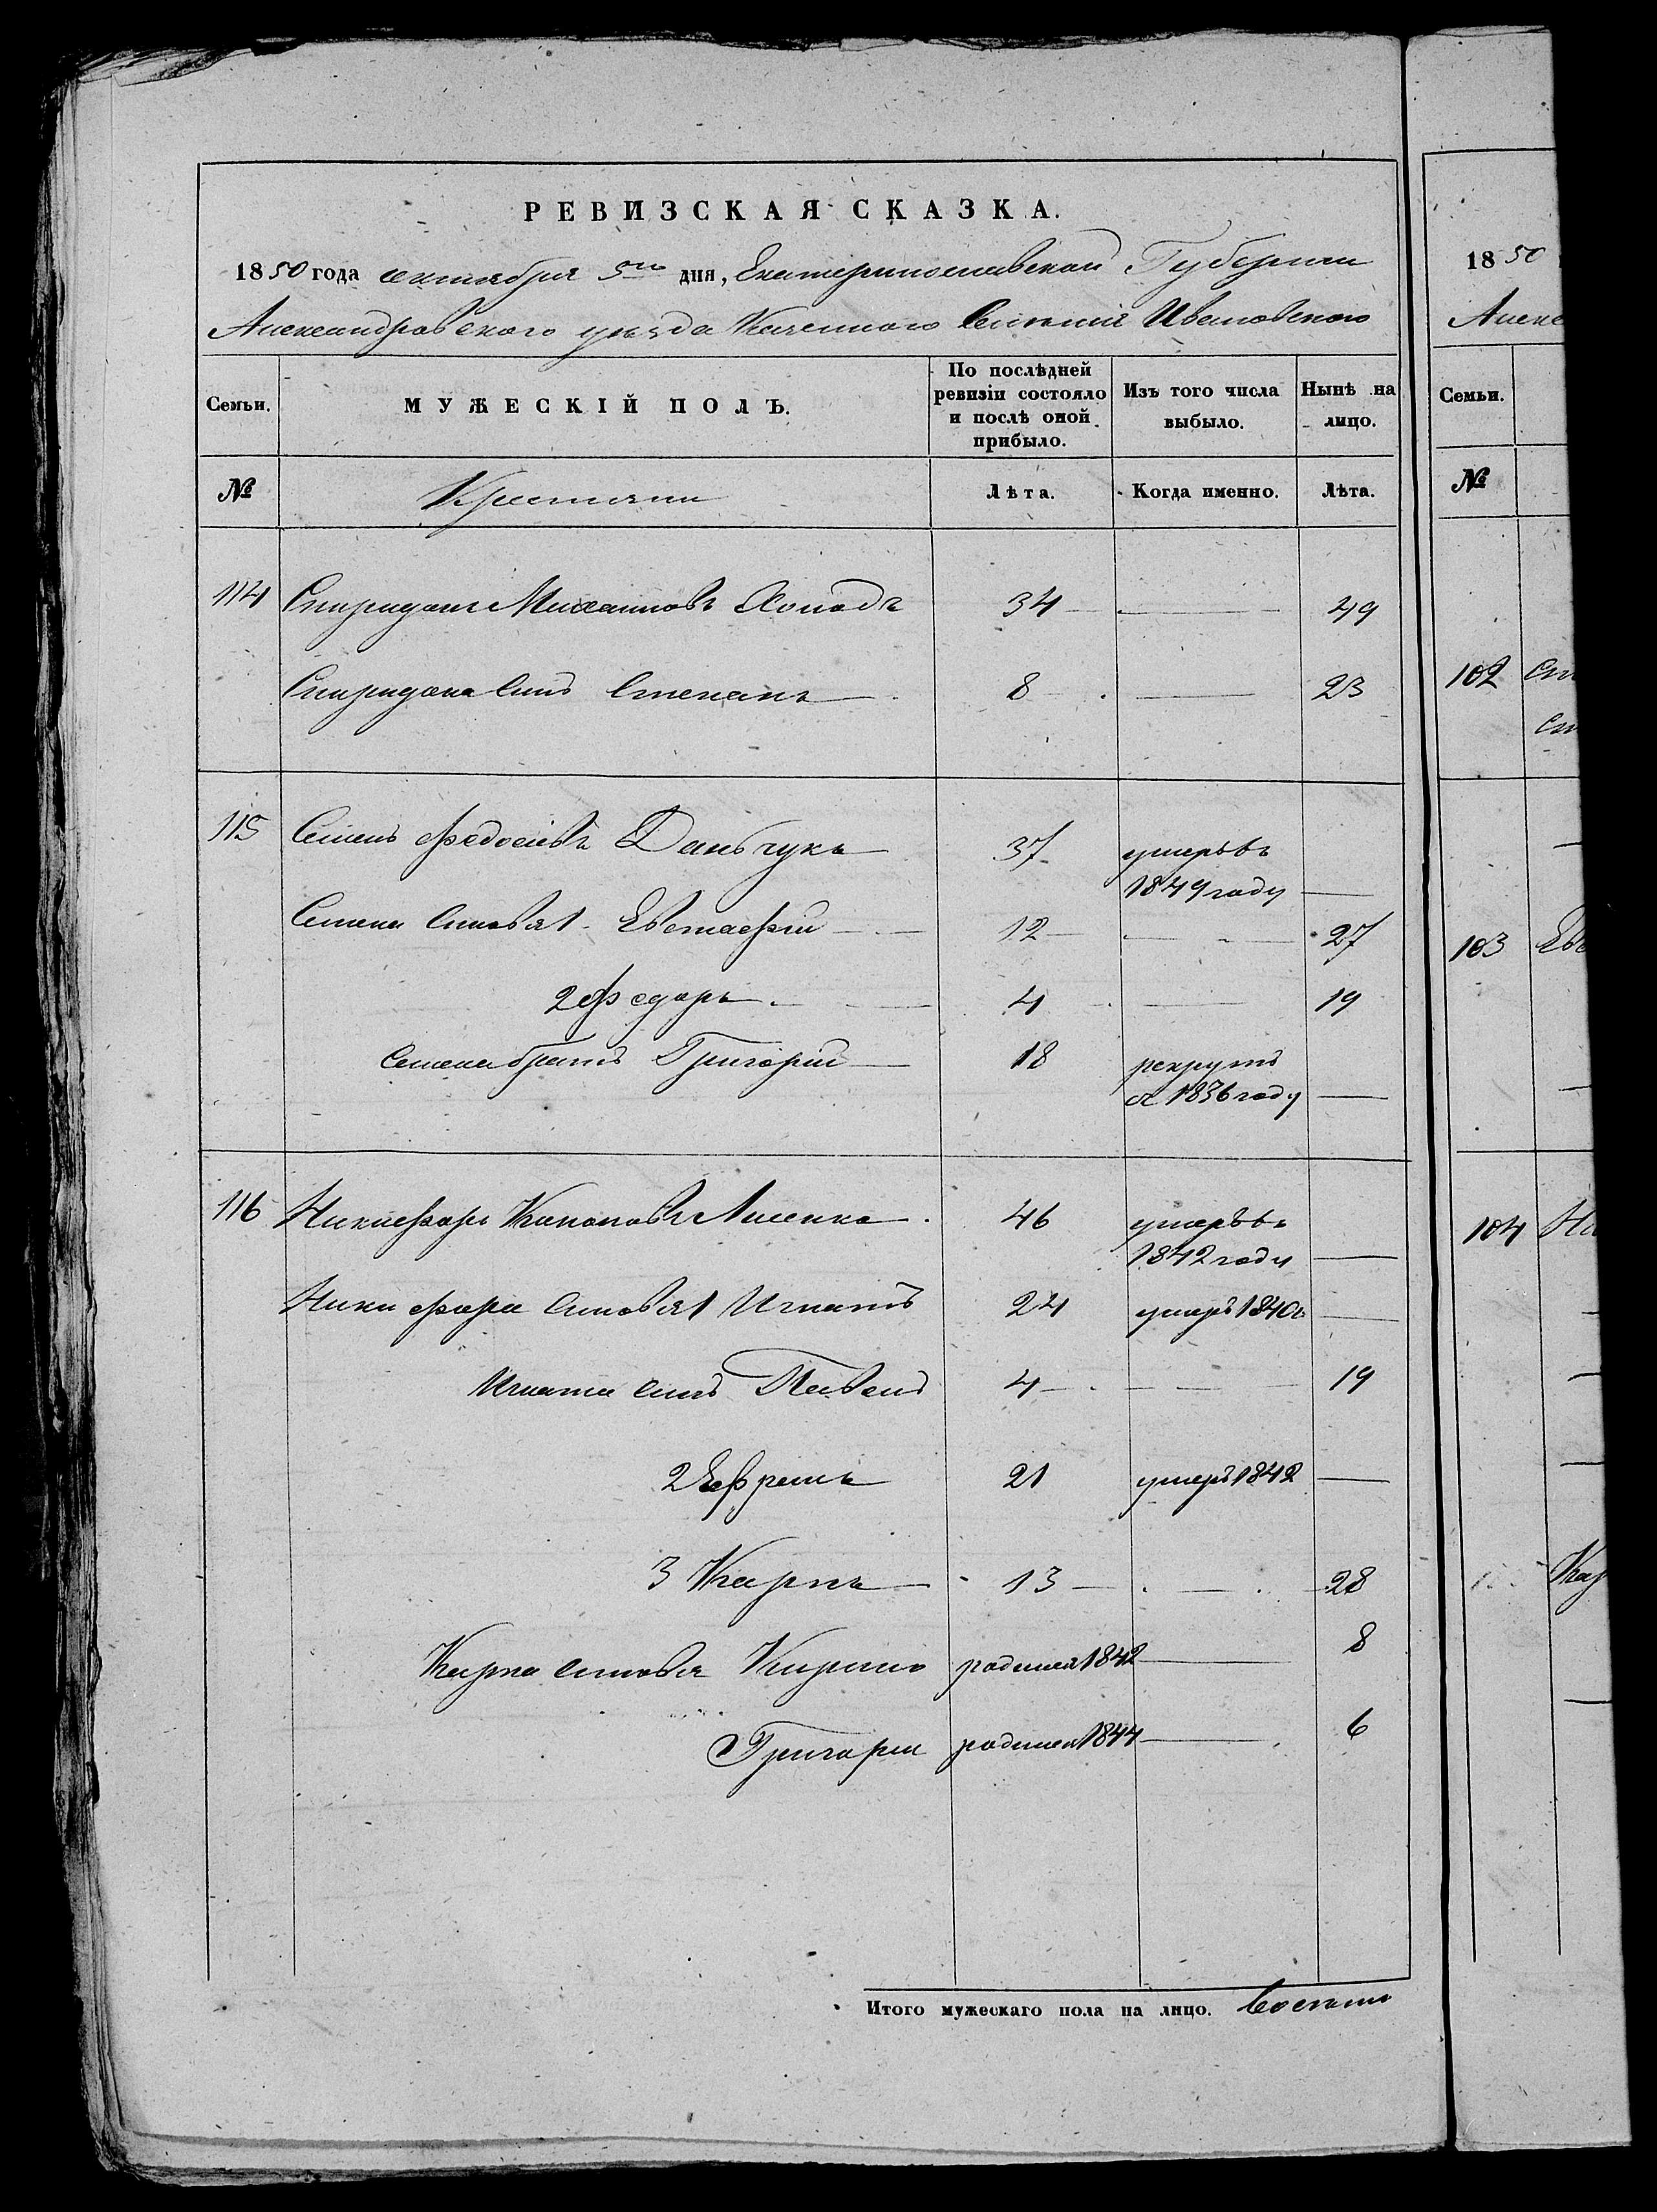 РЕВИЗСКАЯ СКАЗКА.
1850 года октября 5го дня, Екатеринославской Губернии
Александровского уезда Казенного Селения Ивановского
Семьи. МУЖЕСКІЙ ПОЛЪ. По послѣдней ревизіи состояло и послѣ оной прибыло. Изъ того числа выбыло. Нынѣ на лицо.
№ Крестьяни Лѣта. Когда именно. Лѣта.
114 Спиридонъ Михаиловъ Холодъ 34 — 49
Спиридона Синъ Степанъ 8 — 23
115 Семенъ Федосіевъ Даньчукъ 37 умеръ въ
1849 году —
Семена Синовя 1. Евстафій 12 — 27
2 Федоръ 4 — 19
Семена братъ Григорій 18 рекрутъ
1836 году —
116 Никифоръ Кононовъ Лисенко 46 умеръ въ
1842 году —
Никифора Синовя 1 Игнатъ 24 умеръ 1840 г —
Игната Синъ Павелъ 4 — 19
2 Ефремъ 21 умеръ 1842 —
3 Карпъ 13 — 28
Карпа синовя Кирило родился 1842 — 8
Григори родился 1844 — 6
Итого мужескаго пола на лицо. Восемь
1850
Алекс
Семьи.
№
102 Сп
Сп
103 Евс
104 Ни
Кар